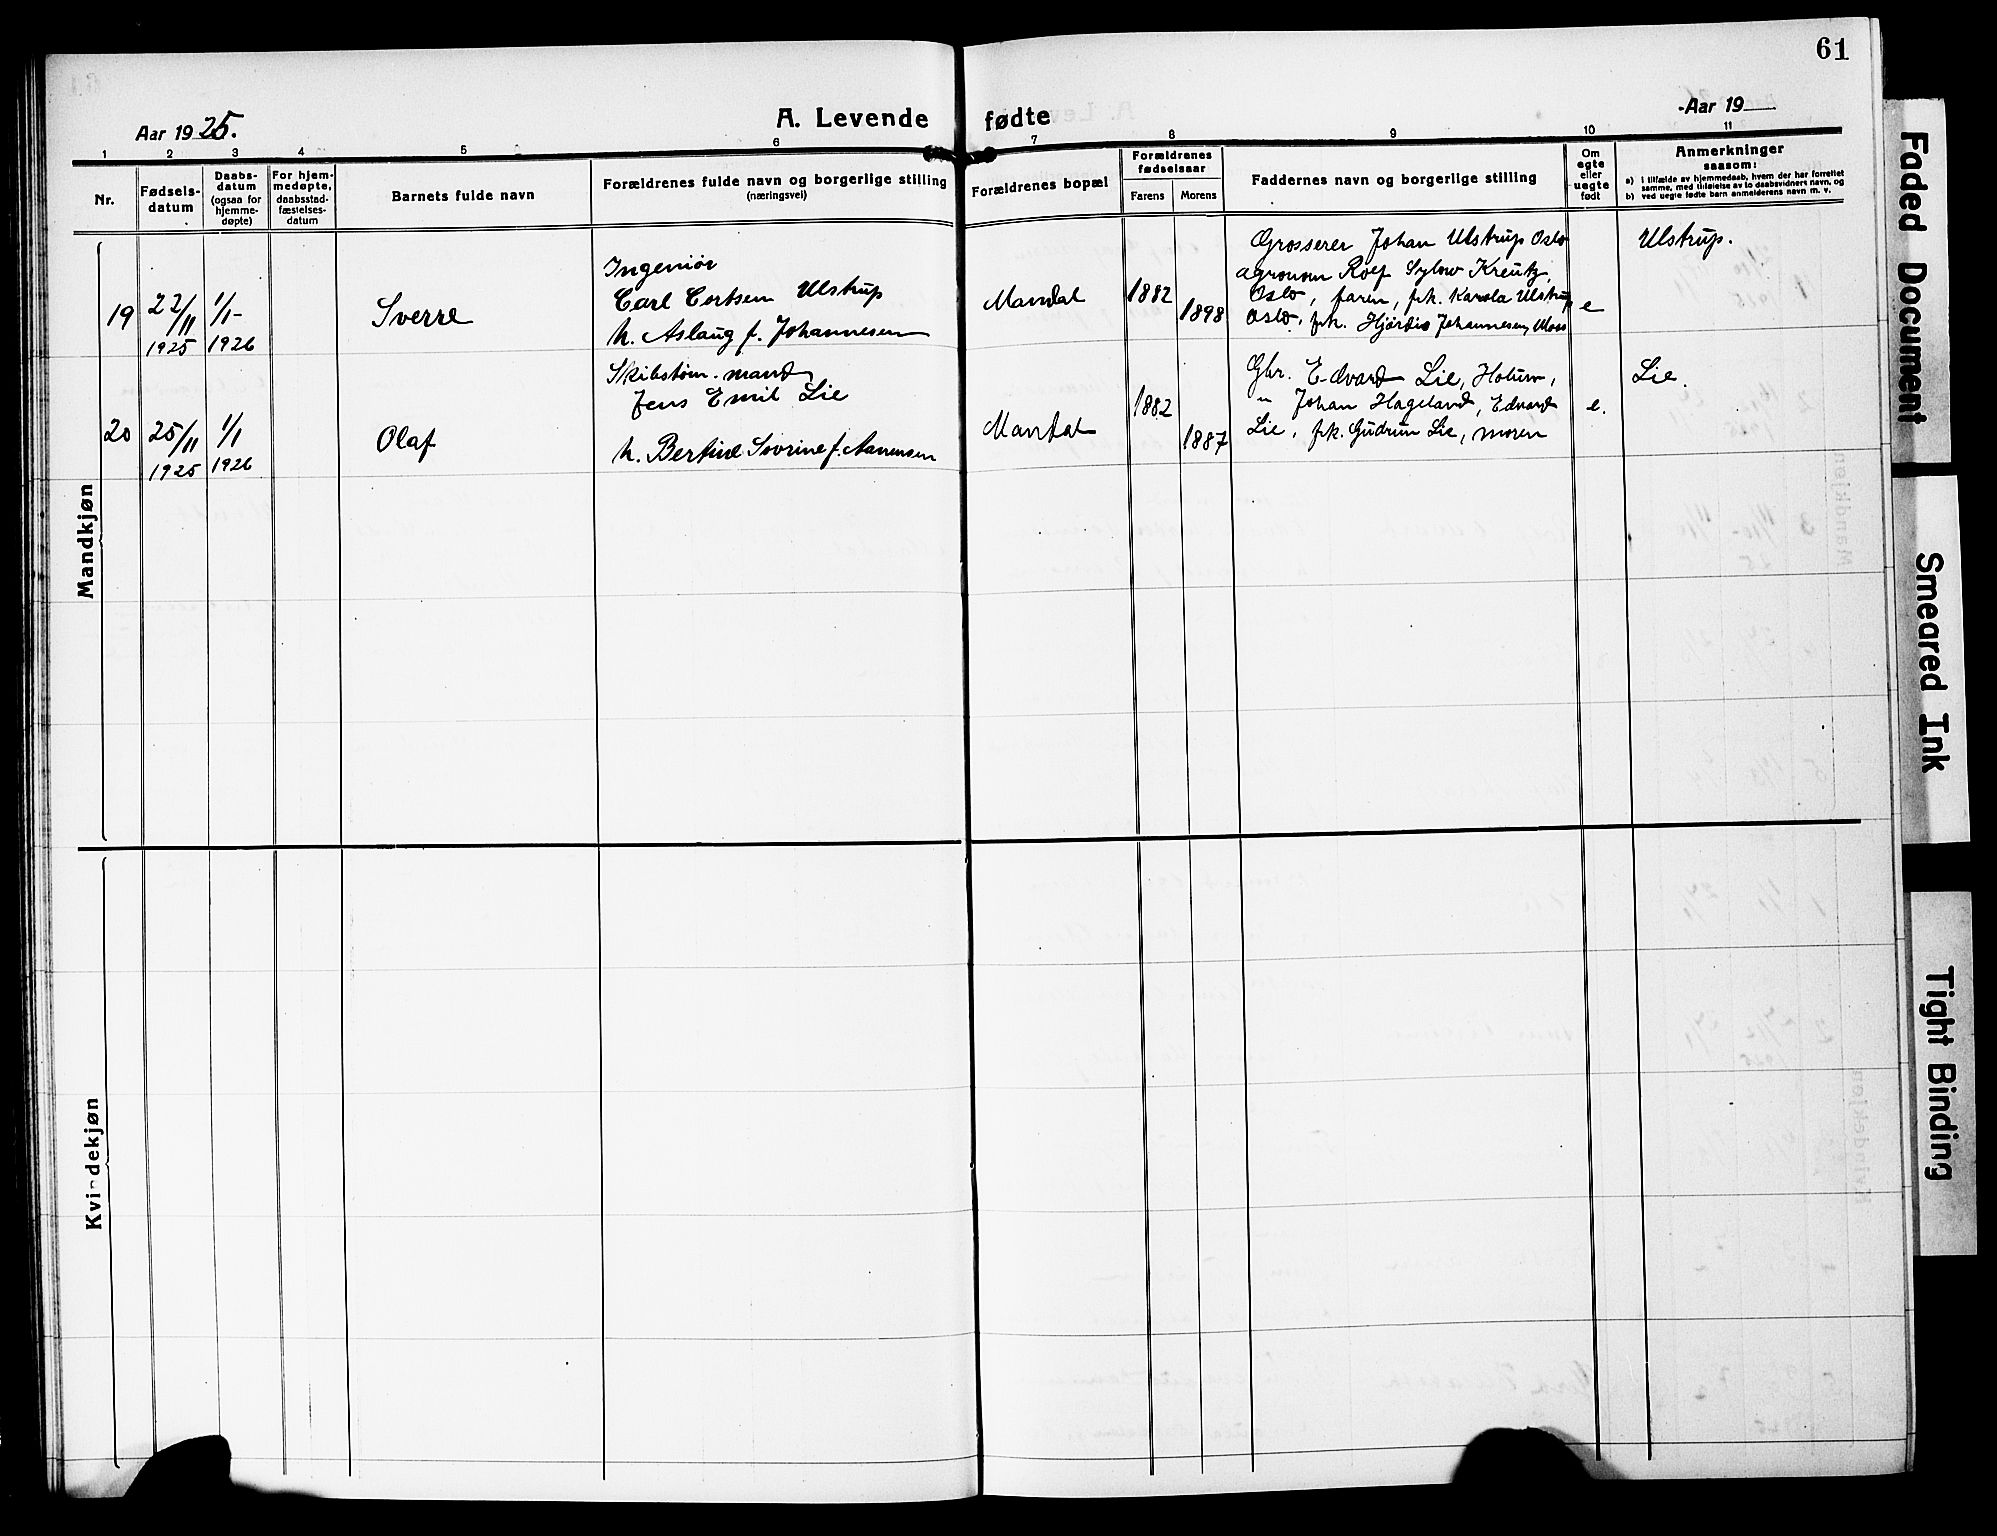 61
Aar 1925.
A. Levende fødte
Aar 19
1 2 3 4 5 6 7 8 9 10 11
Nr.
Fødsels-
datum
Daabs-
datum
(ogsaa for
hjemme-
døpte)
For hjem-
medøpte,
daabsstad-
fæstelses-
datum
Barnets fulde navn
Forældrenes fulde navn og borgerlige stilling
(næringsvei)
Forældrenes bopæl
Forældrenes
fødselsaar
Farens Morens
Faddernes navn og borgerlige stilling
Om
egte
eller
uegte
født
Anmerkninger
saasom:
a) i tilfælde av hjemmedaab, hvem der har forrettet
samme, med tilføielse av to daabsvidners navn, og
b) ved uegte fødte barn anmelderens navn m. v.
Mandkjøn
19
22/11
1925
1/1-
1926
Sverre
Ingeniør
Carl Cortsen Ulstrup
h. Aslaug f. Johannesen
Mandal
1882
1898
Grosserer Johan Ulstrup Oslo
agronom Rolf Sylow Kreutz,
Oslo, faren, frk. Karola Ulstrup
Oslo, frk. Hjørdis Johannesen, Moss
e
Ulstrup.
20
25/11
1925
1/1
1926
Olaf
Skibstøm.mand
Jens Emil Lie
h. Bertine Sovrine f. Aanensen
Mandal
1882
1887
Gbr. Edvard Lie, Holum,
" Johan Hageland, Edvard
Lie, frk. Gudrun Lie, moren
e.
Lie.
Kvindekjøn
Faded Document
Smeared Ink
Tight Binding